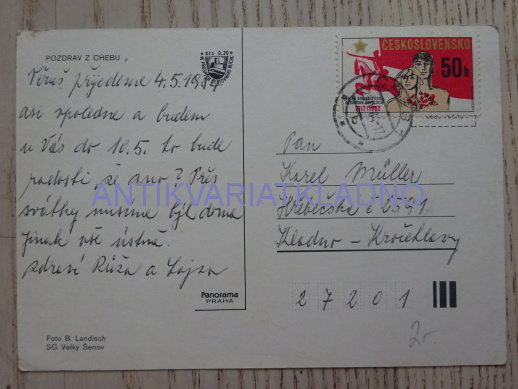 POZDRAV Z CHEBU,
Kčs 0,20
Věruš přijedeme 4.5.1984
asi společne a budem
u Vás do 10.5. to bude
radosti, že ano? Přes
svátky musíme být doma
Jinak vše ústně.
zdraví Růža a Lojza
ČESKOSLOVENSKO
50h
1917/1982
Pan
Karel Müller
Hřebečská č 2591
Kladno - Kročehlavy
27201
Panorama
PRAHA
Foto B. Landisch
SG Velký Šenov
2.-
ANTIKVARIATKLADNO